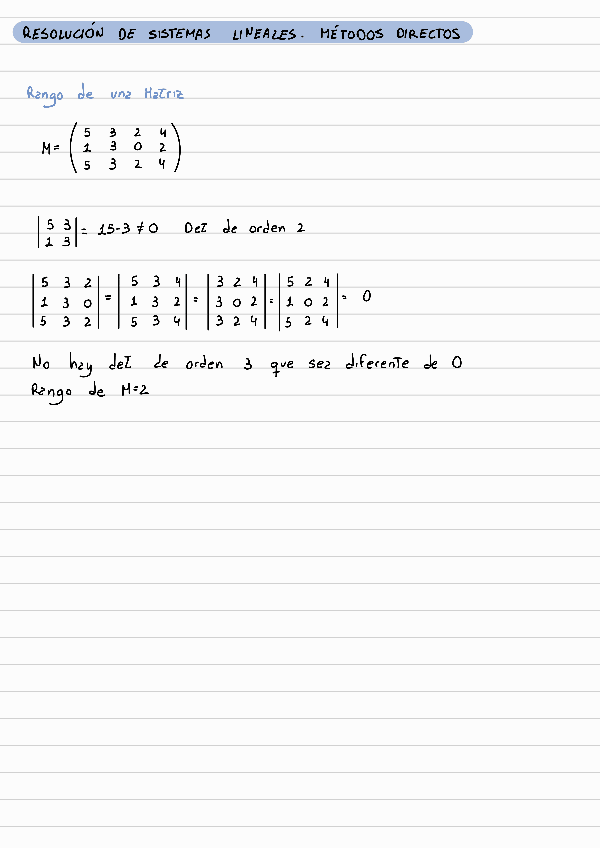 RESOLUCIÓN DE SISTEMAS LINEALES. MÉTODOS DIRECTOS
Rango de una Matriz
5 3 2 4
M= 1 3 0 2
5 3 2 4
|5 3| = 15-3 ≠ 0 Det de orden 2
|1 3|
|5 3 2| |5 3 4| |3 2 4| |5 2 4|
|1 3 0| = |1 3 2| = |3 0 2| = |1 0 2| = 0
|5 3 2| |5 3 4| |3 2 4| |5 2 4|
No hay det de orden 3 que sea diferente de 0
Rango de M=2